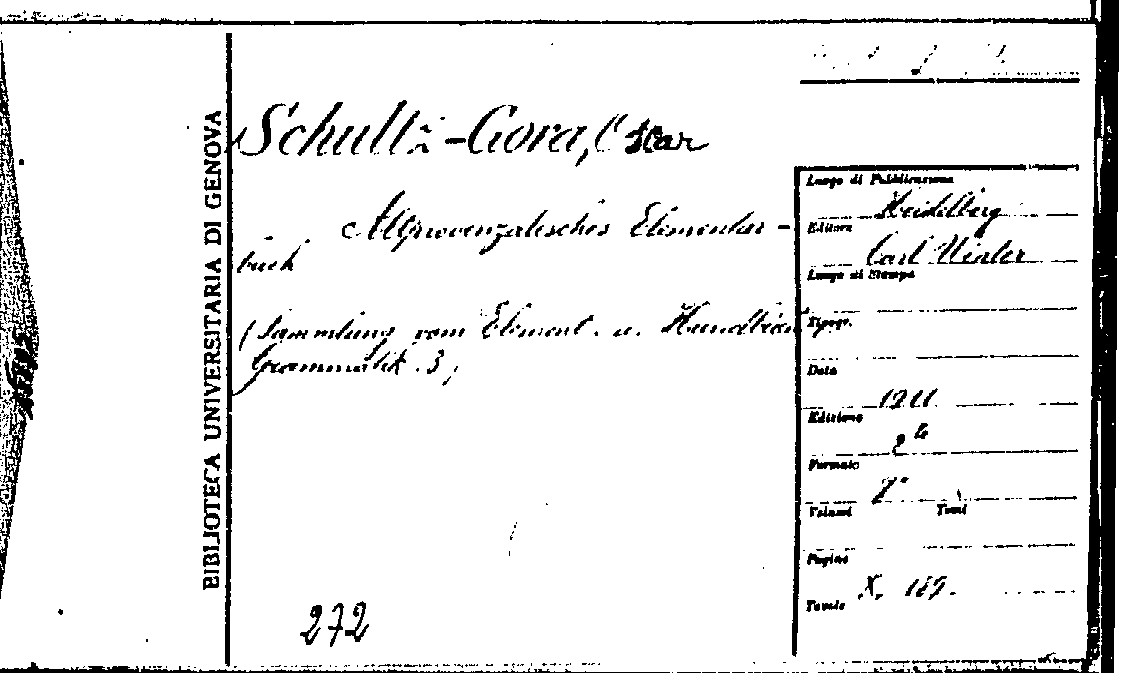 BIBLIOTECA UNIVERSITARIA DI GENOVA
Schultz-Gora, Oscar
Altprovenzalisches Elementar-
buch
(Sammlung vom Element. u.
Grammatik. 3)
272
Luogo di Pubblicazione
Heidelberg
Editore
Carl Winter
Luogo di Stampa
Tipogr.
Data
1911
Edizione
Formato
8°
Volumi Tomi
Pagine
X, 189.
Tavole